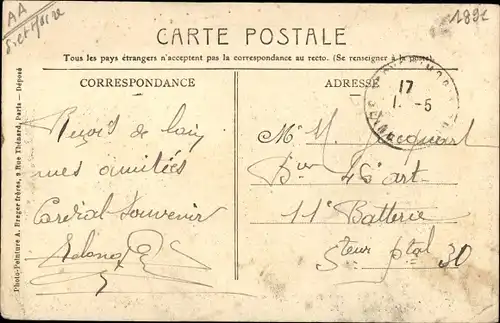 AA
S. et Marne
1892
CARTE POSTALE
Tous les pays étrangers n'acceptent pas la correspondance au recto. (Se renseigner à la poste)
CORRESPONDANCE
ADRESSE
17
1 -5
de loin
mes amitiés
Cordial Souvenir
Mr M. Jacquart
Bier 46e art.
11e Batterie
Steur ptal 30
Photo-Peinture A. Breger frères, 9 Rue Thénard, Paris — Déposé